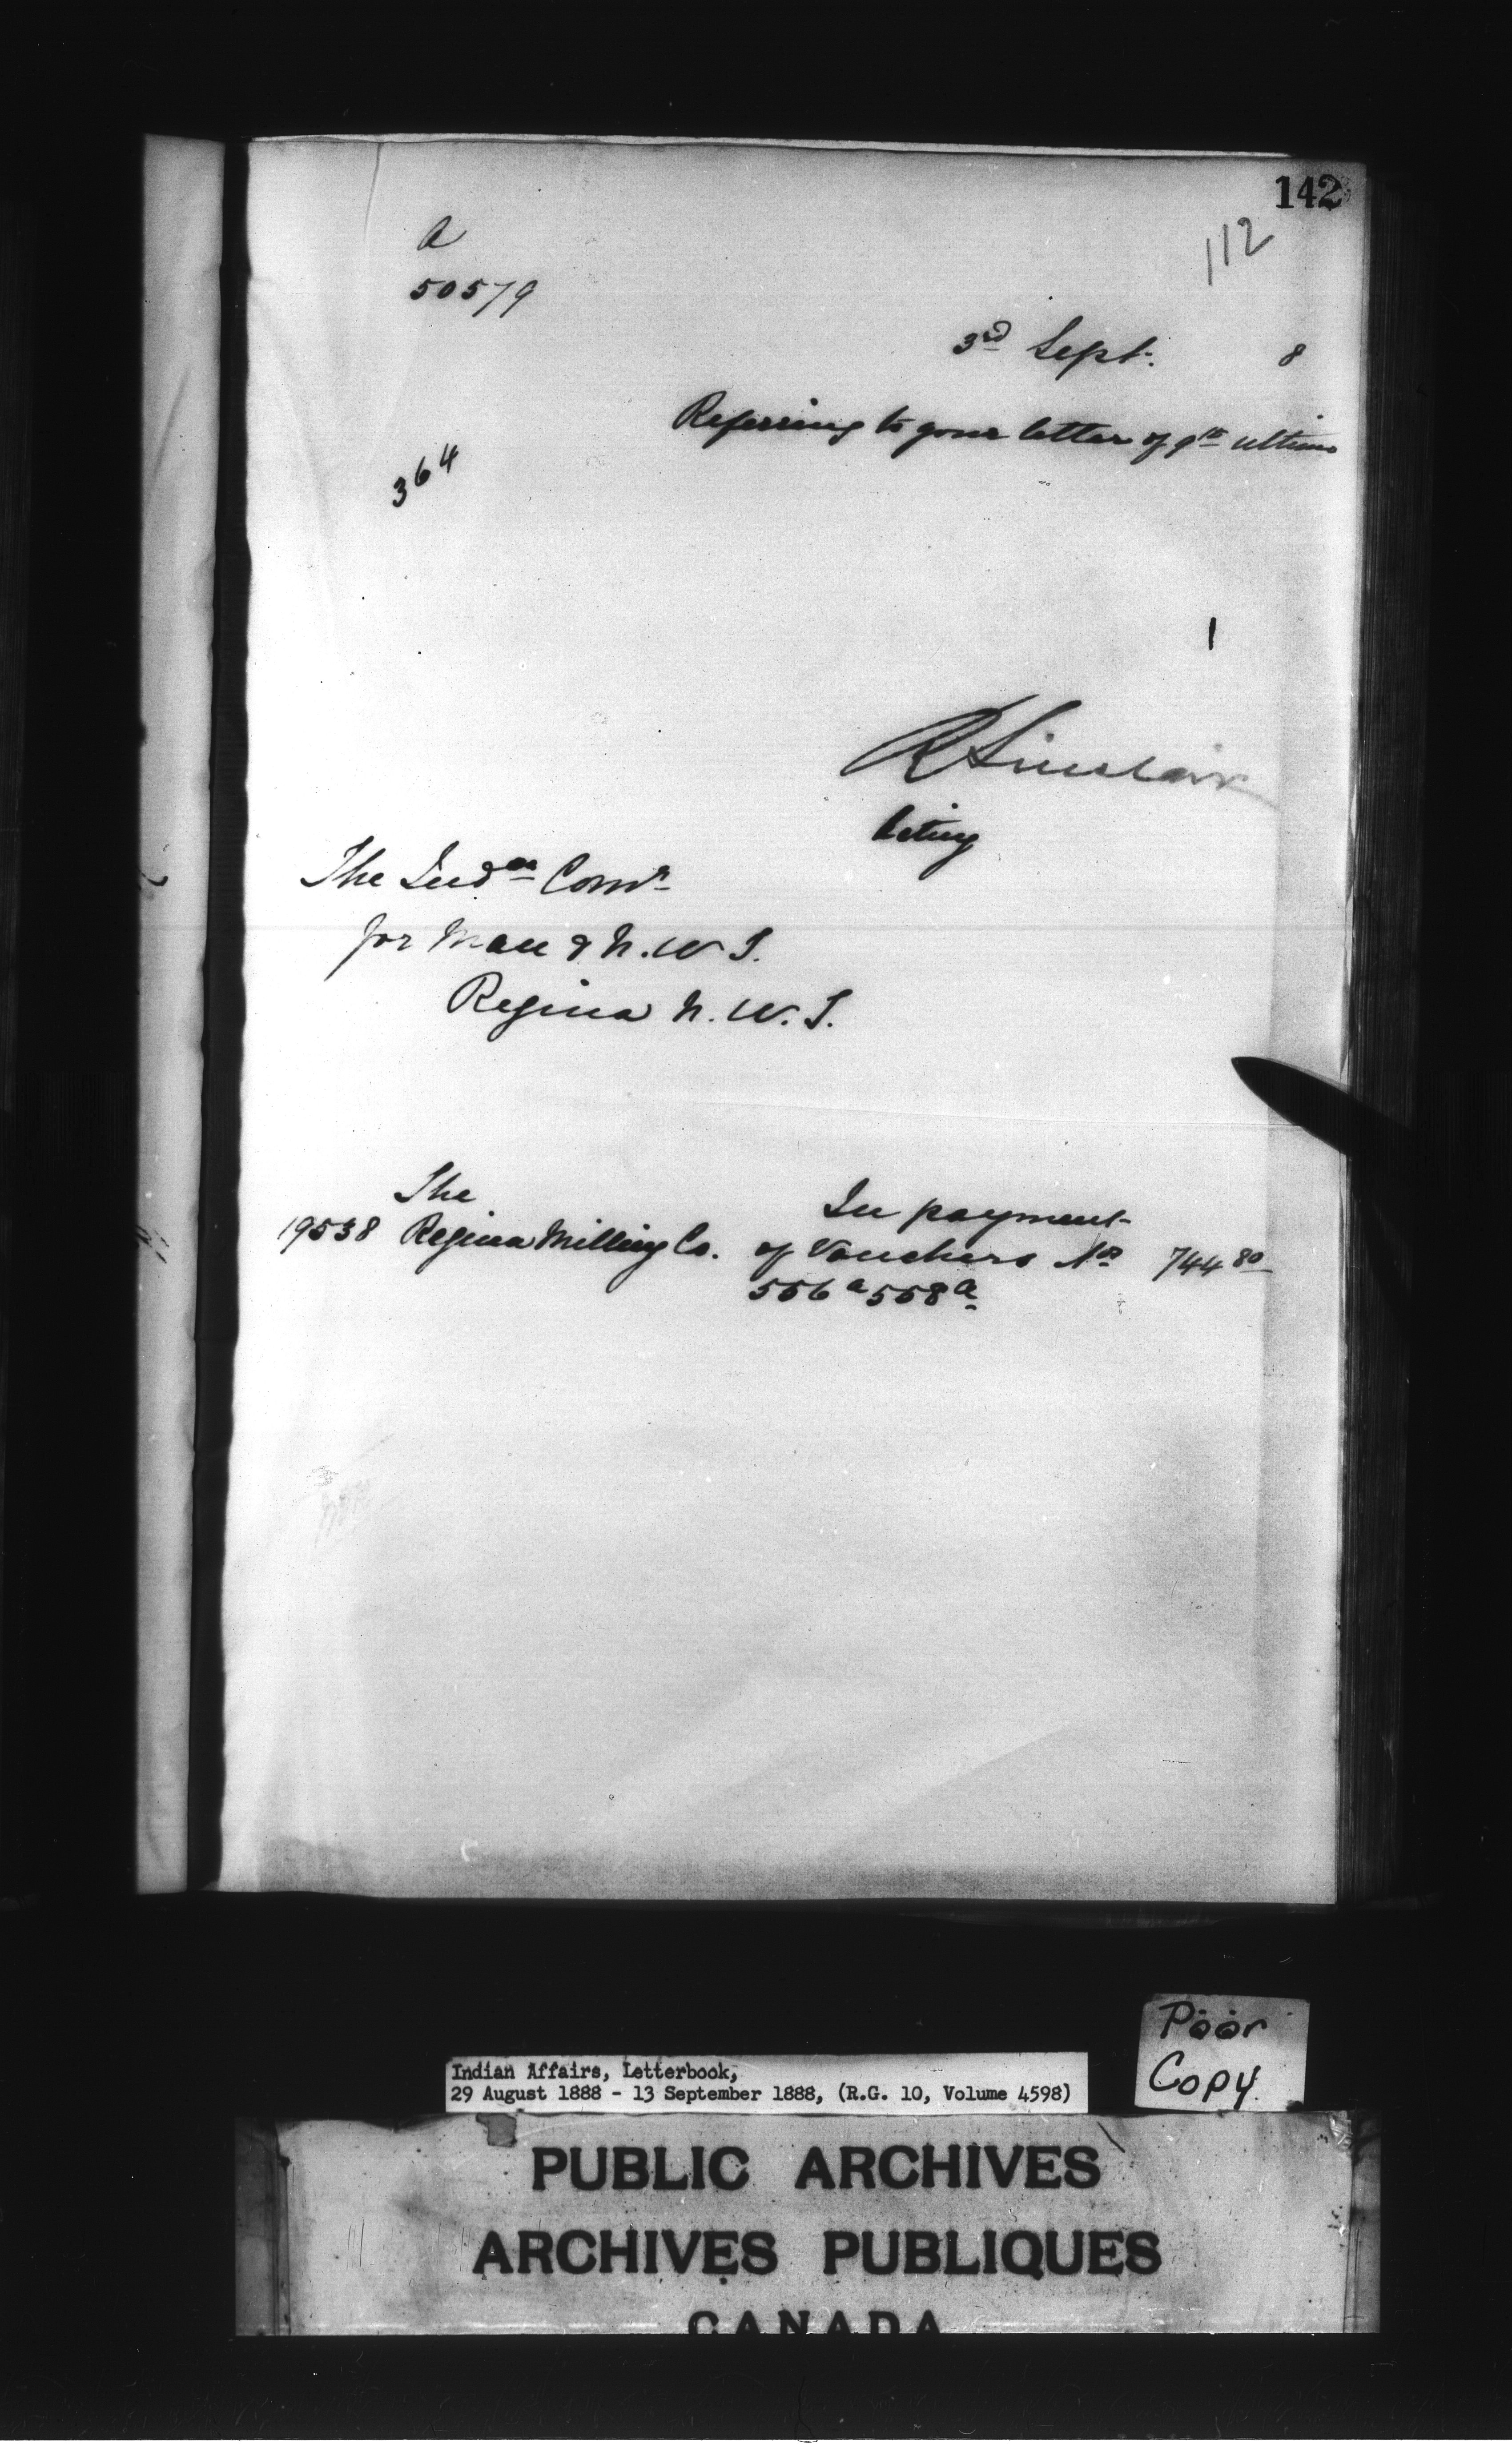 142
112
a
50579
3rd Sept. 8
Referring to your letter of 9th ultimo
364
1
R Sinclair
Acting
The Indan Comr
for Man & N.W T.
Regina N.W.T.
The In payment
19538 Regina Milling Co. of Vouchers Nos 744 80
556a 558a
Poor
Copy.
Indian Affairs, Letterbook,
29 August 1888 - 13 September 1888, (R.G. 10, Volume 4598)
PUBLIC ARCHIVES
ARCHIVES PUBLIQUES
CANADA